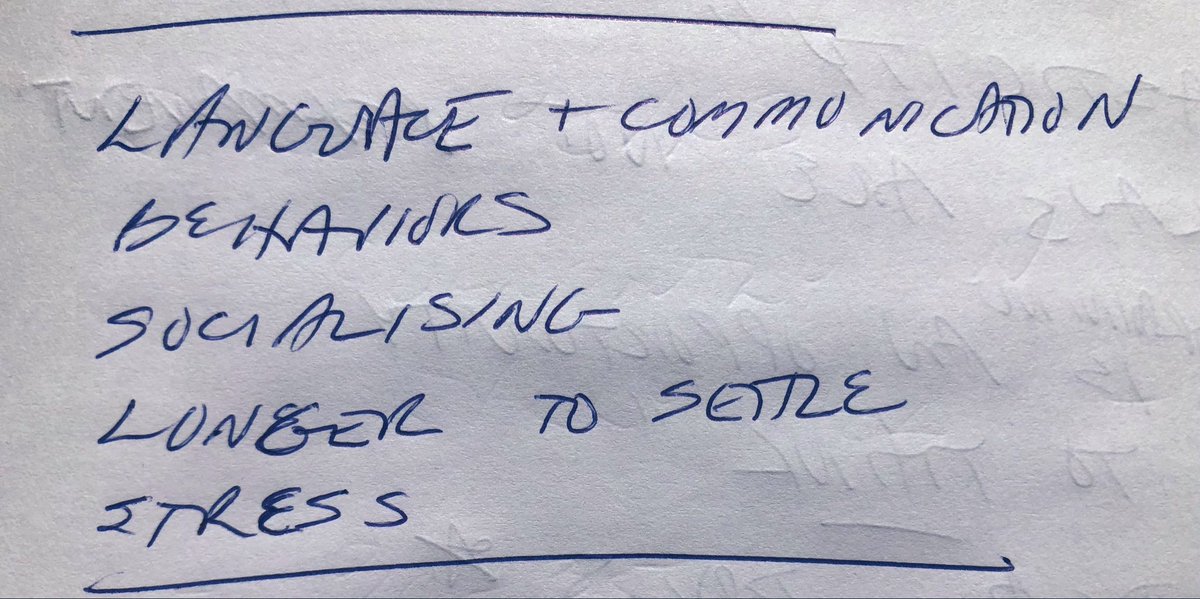 LANGUAGE + COMMUNICATION
BEHAVIORS
SOCIALISING
LONGER TO SETTLE
STRESS